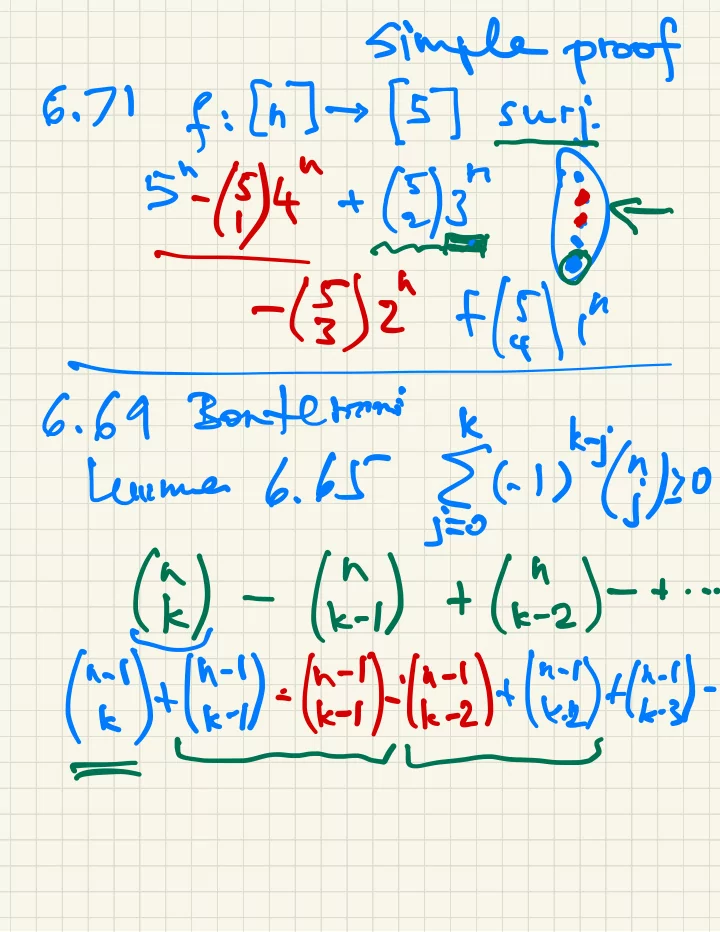 simple proof
6.71 f: [n] → [5] surj.
5^n - \binom{5}{1} 4^n + \binom{5}{2} 3^n
- \binom{5}{3} 2^n + \binom{5}{4} 1^n
6.69
6.65 \sum_{j=0}^{k} (-1)^{k-j} \binom{n}{j} ≥ 0
\binom{n}{k} - \binom{n}{k-1} + \binom{n}{k-2} - + ...
\binom{n-1}{k} + \binom{n-1}{k-1} - \binom{n-1}{k-1} - \binom{n-1}{k-2} + \binom{n-1}{k-2} + \binom{n-1}{k-3} -